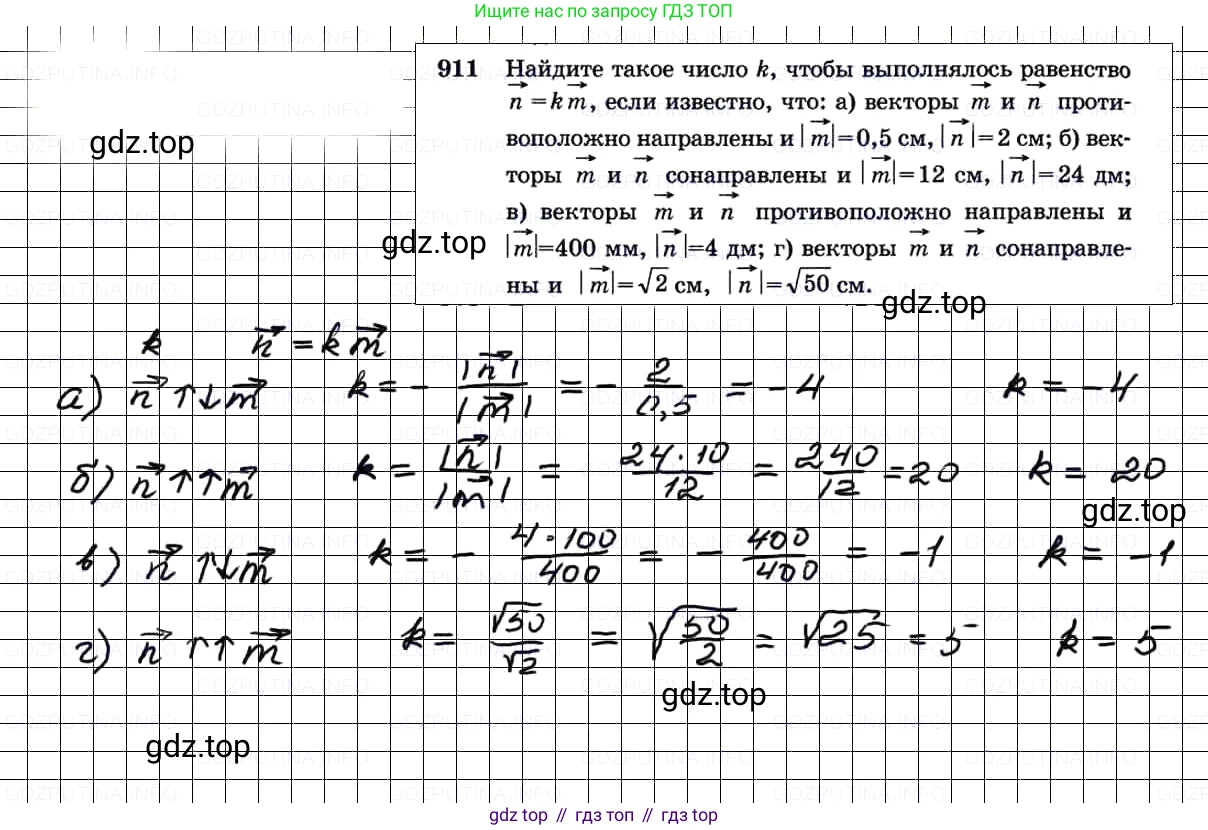 Ищите нас по запросу ГДЗ ТОП
911 Найдите такое число k, чтобы выполнялось равенство
n⃗ = k m⃗, если известно, что: а) векторы m⃗ и n⃗ проти-
воположно направлены и |m⃗|=0,5 см, |n⃗|=2 см; б) век-
торы m⃗ и n⃗ сонаправлены и |m⃗|=12 см, |n⃗|=24 дм;
в) векторы m⃗ и n⃗ противоположно направлены и
|m⃗|=400 мм, |n⃗|=4 дм; г) векторы m⃗ и n⃗ сонаправле-
ны и |m⃗|=√2 см, |n⃗|=√50 см.
gdz.top
gdz.top
gdz.top
k n⃗ = k m⃗
а) n⃗ ↑↓ m⃗ k = - |n⃗|/|m⃗| = - 2/0,5 = -4 k = -4
б) n⃗ ↑↑ m⃗ k = |n⃗|/|m⃗| = 24·10/12 = 240/12 = 20 k = 20
gdz.top
в) n⃗ ↑↓ m⃗ k = - 4·100/400 = - 400/400 = -1 k = -1
г) n⃗ ↑↑ m⃗ k = √50/√2 = √(50/2) = √25 = 5 k = 5
gdz.top
gdz.top
GDZPUTINA.INFO
gdz top // гдз топ // gdz top